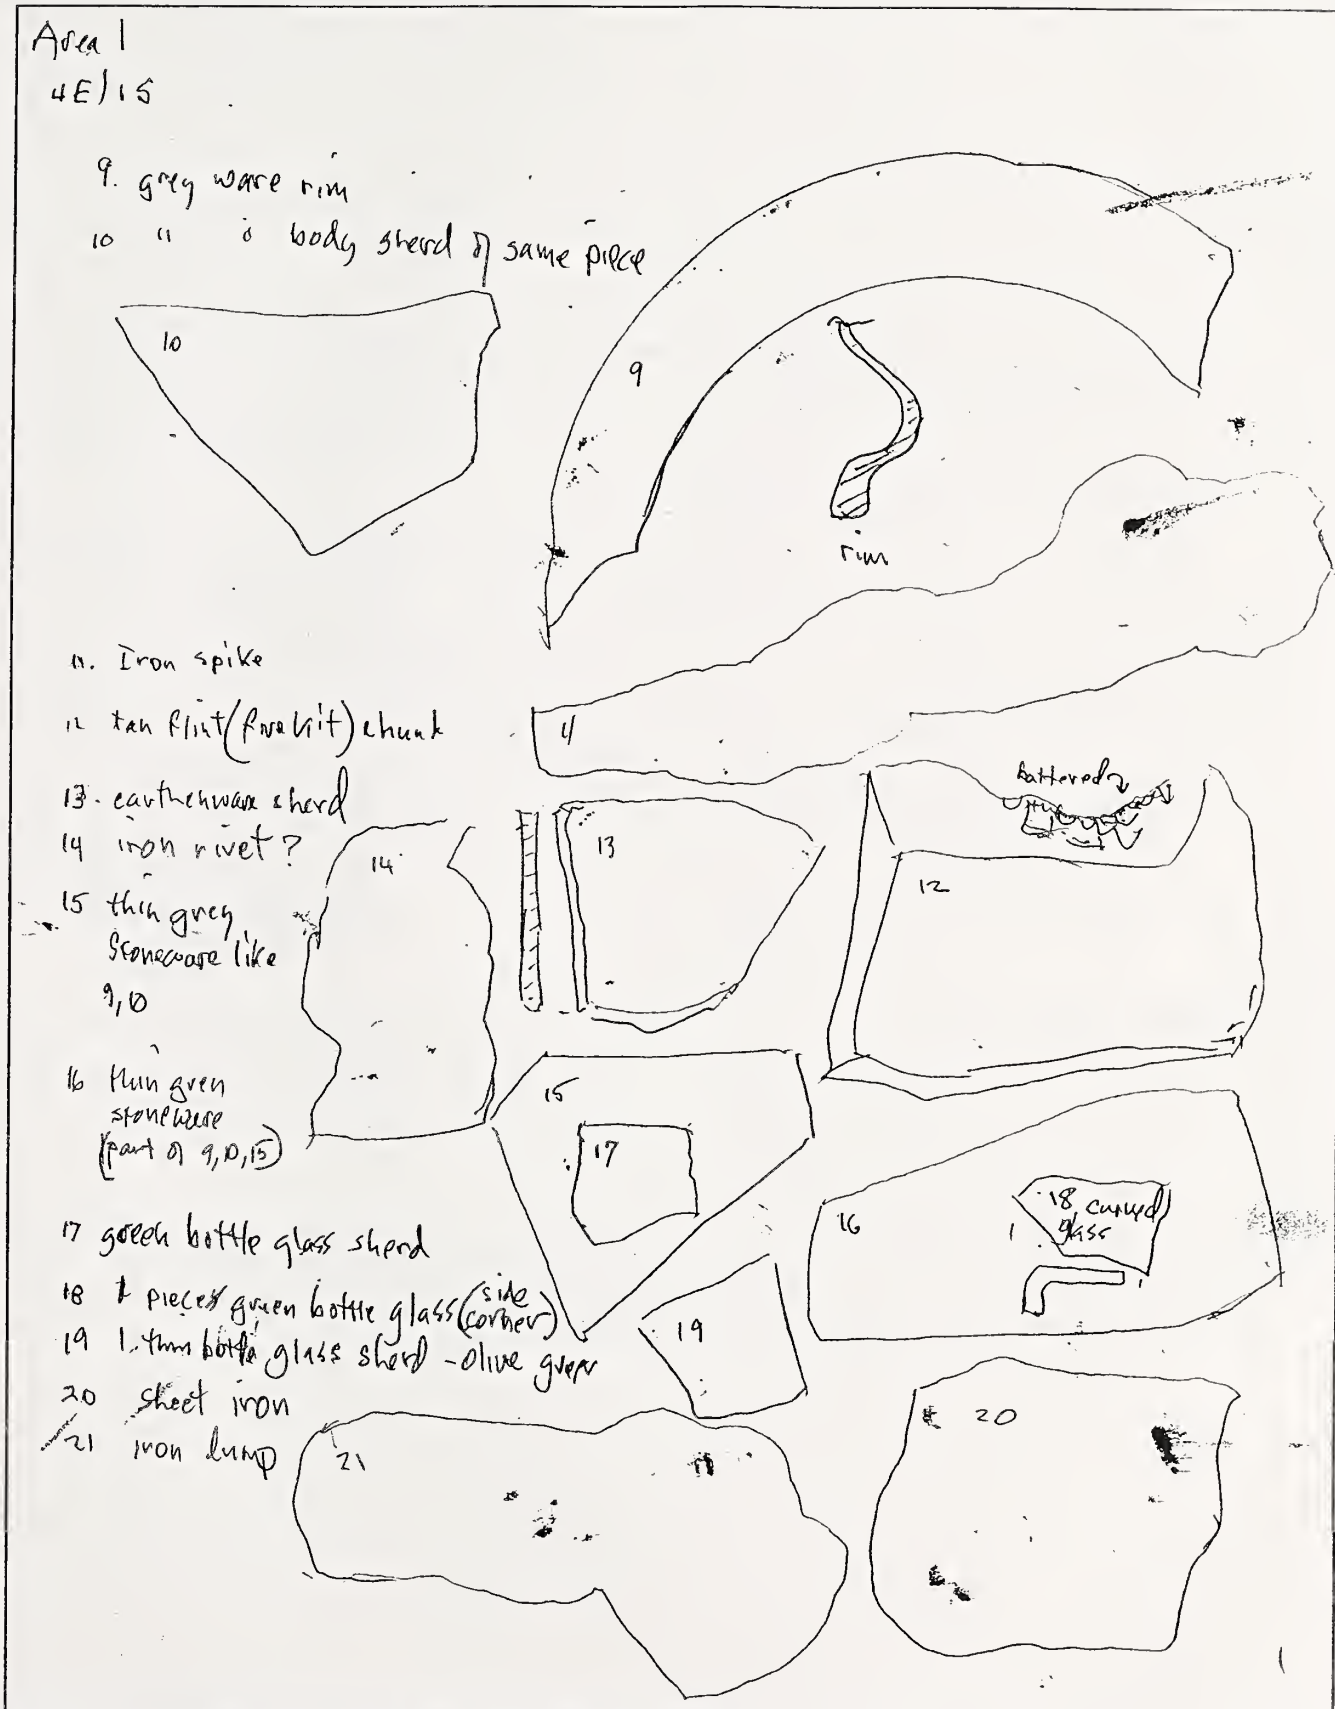 Area 1
4E/1S
9. grey ware rim
10 " " body sherd of same piece
10
9
rim
11. Iron spike
12 tan flint (fire kit) chunk
11
battered
13. earthenware sherd
14 iron rivet?
14
13
12
15 thin grey
stoneware like
9, 10
16 thin green
stoneware
(part of 9, 10, 15)
15
17
16
18 curved
glass
17 green bottle glass sherd
18 1 piece green bottle glass (side
corner)
19 1 thin bottle glass sherd - olive green
19
20 sheet iron
21 iron lump
21
20